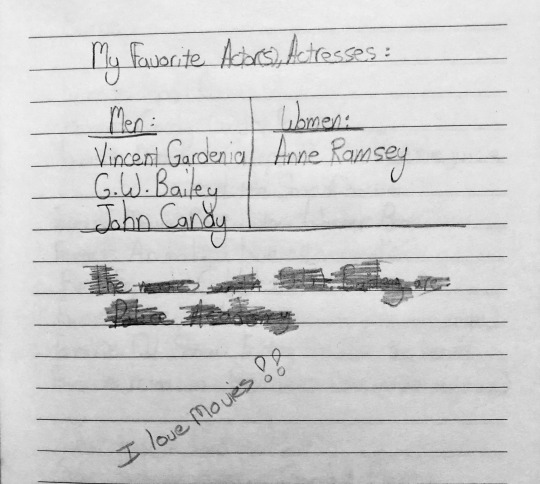 My Favorite Actor(s), Actresses:
Men: Women:
Vincent Gardenia Anne Ramsey
G.W. Bailey
John Candy
The are
Police Academy
I love Movies!!